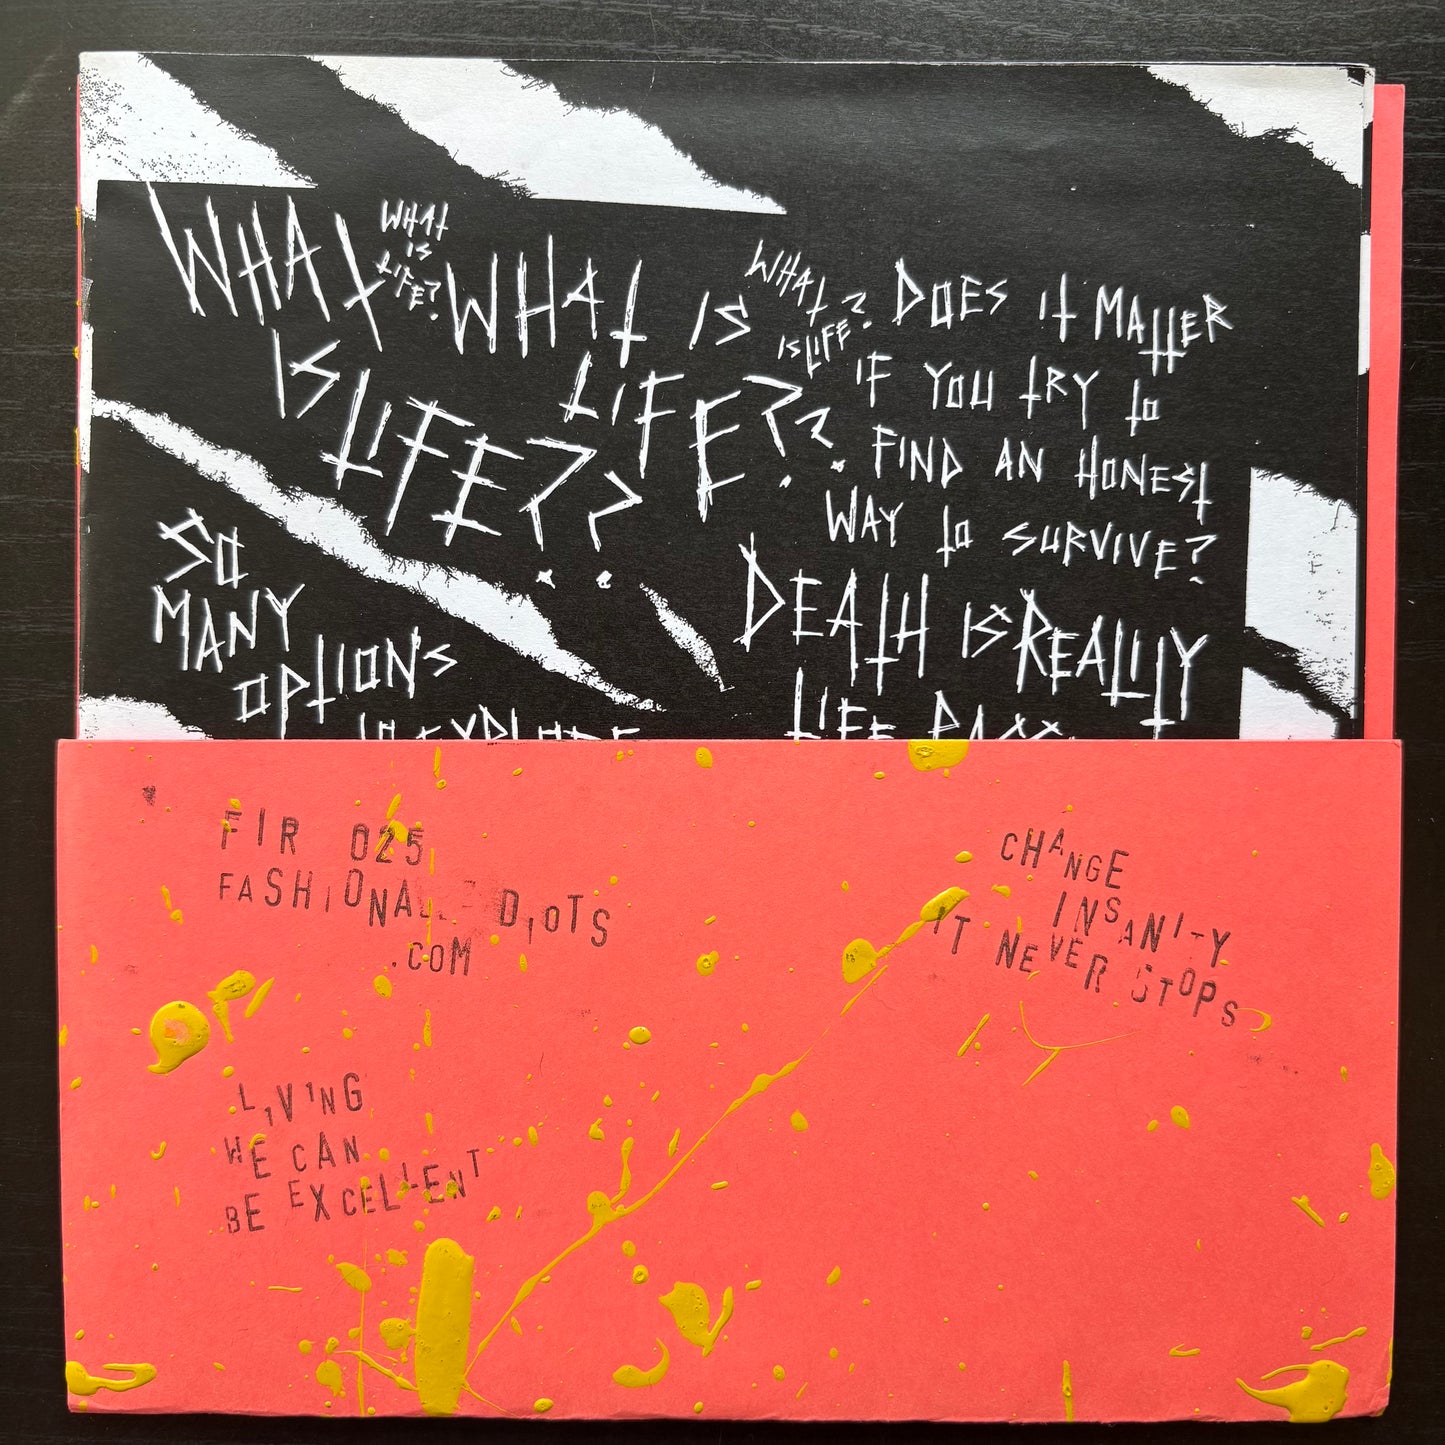 WHAT
IS LIFE?
?
WHAT
IS
LIFE?
WHAT IS
LIFE?
?
WHAT
IS LIFE?
DOES IT MATTER
IF YOU TRY TO
FIND AN HONEST
WAY TO SURVIVE?
SO
MANY
OPTIONS
TO EXPLORE
DEATH IS REALITY
LIFE
FIR 025
FASHIONABLE IDIOTS
.COM
CHANGE
INSANITY
IT NEVER STOPS
LIVING
WE CAN
BE EXCELLENT